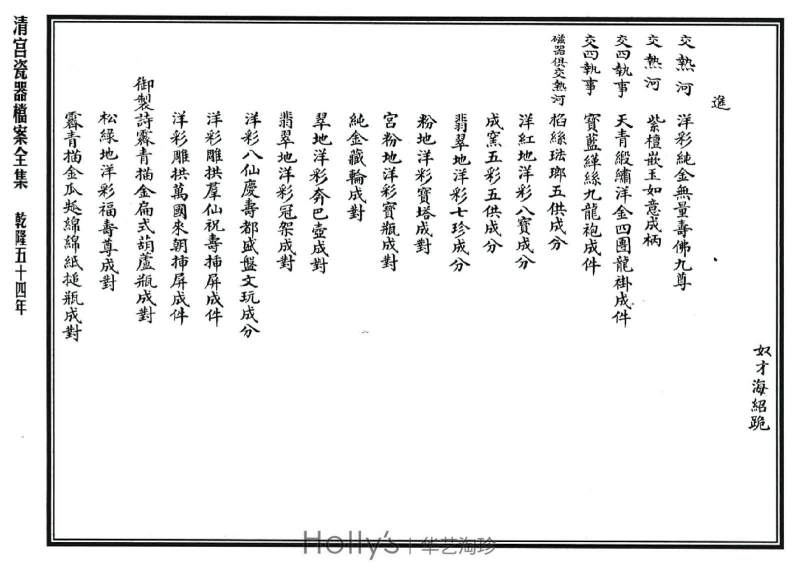 奴才海紹跪
進
交熱河 洋彩純金無量壽佛九尊
交熱河 紫檀嵌玉如意成柄
交四執事 天青緞繡洋金四團龍褂成件
交四執事 寶藍緙絲九龍袍成件
磁器俱交熱河 掐絲琺瑯五供成分
洋紅地洋彩八寶成分
成窯五彩五供成分
翡翠地洋彩七珍成分
粉地洋彩寶塔成對
宮粉地洋彩寶瓶成對
純金藏輪成對
翠地洋彩奔巴壺成對
翡翠地洋彩冠架成對
洋彩八仙慶壽都盛盤文玩成分
洋彩雕拱羣仙祝壽插屏成件
洋彩雕拱萬國來朝插屏成件
御製詩霽青描金扁式葫蘆瓶成對
松綠地洋彩福壽尊成對
霽青描金瓜瓞綿綿紙搥瓶成對
清宮瓷器檔案全集 乾隆五十四年
Holly's | 华艺淘珍